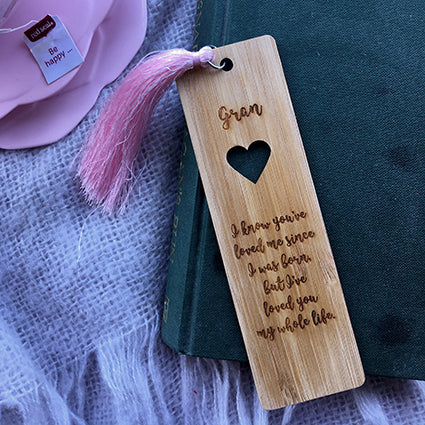 red seal
Be
happy ...
Gran
I know you've
loved me since
I was born,
but I've
loved you
my whole life.